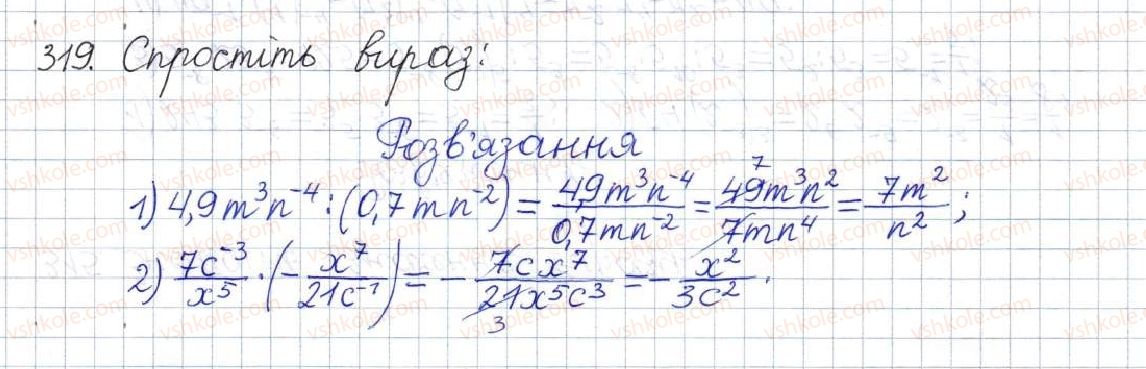 319. Спростіть вираз:
Розв'язання
1) 4,9m³n⁻⁴ : (0,7mn⁻²) = 4,9m³n⁻⁴/0,7mn⁻² = 49m³n²/7mn⁴ = 7m²/n²;
2) 7c⁻³/x⁵ · (−x⁷/21c⁻¹) = −7cx⁷/21x⁵c³ = −x²/3c².